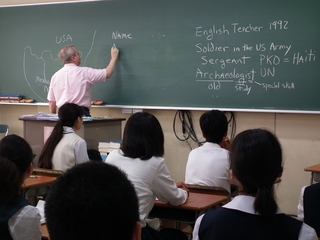 USA
Name
English Teacher 1992
Soldier in the US Army
Sergeant PKO = Haiti
Archaeologist UN
old study special skill